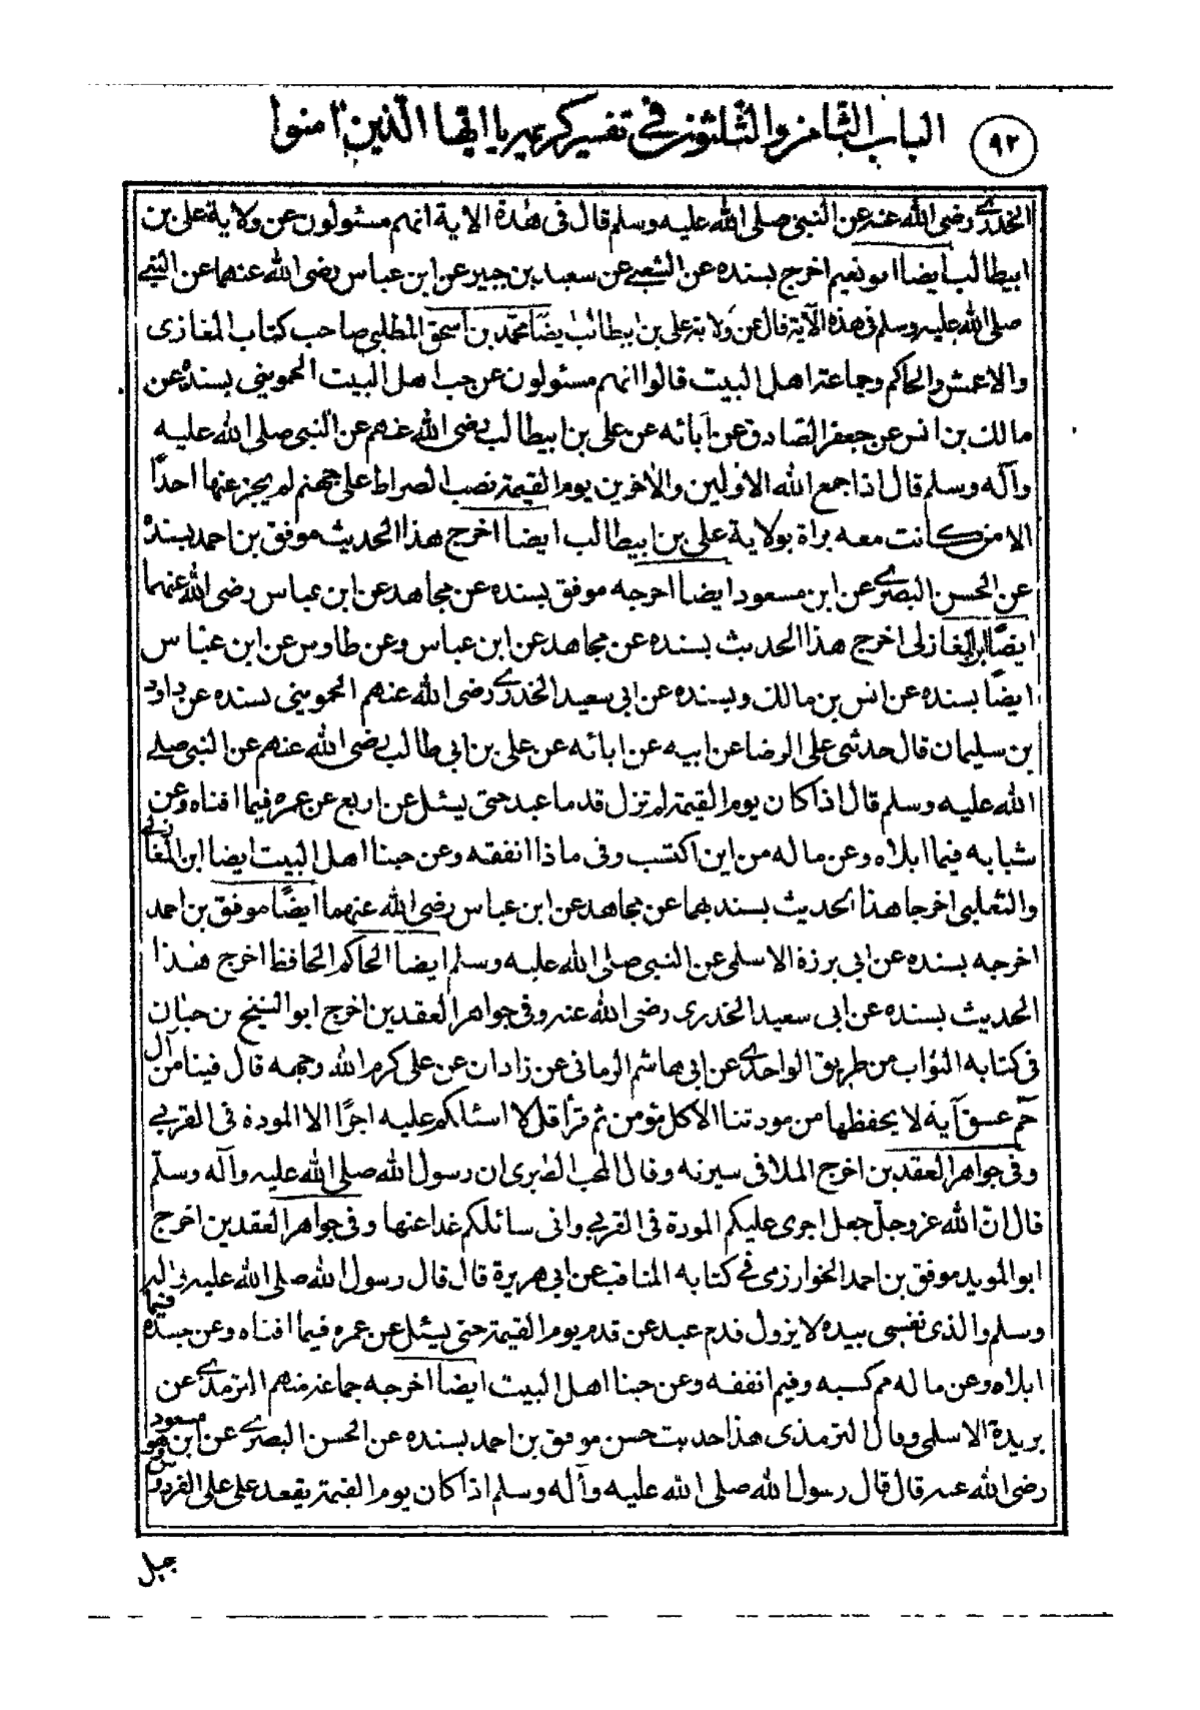 ٩٢
الباب الثامن والثلثون في تفسير كريمه يا ايها الذين امنوا
الخدري رضى الله عنه عن النبي صلى الله عليه وسلم قال فى هذه الاية انهم مسئولون عن ولاية على بن
ابيطالب ايضا ابو نعيم اخرج بسنده عن الشعبي عن سعيد بن جبير عن ابن عباس رضى الله عنهما عن النبي
صلى الله عليه وسلم فى هذه الآية قال عن ولاية على بن ابيطالب ايضا محمد بن اسحق المطلبى صاحب كتاب المغازى
والاعمش والحاكم وجماعة اهل البيت قالوا انهم مسئولون عن حب اهل البيت الحموينى بسنده عن
مالك بن انس عن جعفر الصادق عن آبائه عن على بن ابيطالب رضى الله عنهم عن النبى صلى الله عليه
وآله وسلم قال اذا جمع الله الاولين والاخرين يوم القيمة نصب الصراط على جهنم لم يجز عنها احدًا
الا من كانت معه براة بولاية على بن ابيطالب ايضا اخرج هذا الحديث موفق بن احمد بسنده
عن الحسن البصرى عن ابن مسعود ايضا اخرجه موفق بسنده عن مجاهد عن ابن عباس رضى الله عنهما
ايضًا ابن المغازلى اخرج هذا الحديث بسنده عن مجاهد عن ابن عباس وعن طاوس عن ابن عباس
ايضًا بسنده عن انس بن مالك وبسنده عن ابى سعيد الخدرى رضى الله عنهم الحموينى بسنده عن داود
بن سليمان قال حدثنى على الرضا عن ابيه عن ابائه عن على بن ابى طالب رضى الله عنهم عن النبى صلى
الله عليه وسلم قال اذا كان يوم القيمة لم تزل قدما عبد حتى يسئل عن اربع عن عمره فيما افناه وعن
شبابه فيما ابلاه وعن ماله من اين اكتسب وفى ماذا انفقه وعن حبنا اهل البيت ايضا ابن المغازلى
والثعلبى اخرجا هذا الحديث بسندهما عن مجاهد عن ابن عباس رضى الله عنهما ايضًا موفق بن احمد
اخرجه بسنده عن ابى برزة الاسلمى عن النبى صلى الله عليه وسلم ايضا الحاكم الحافظ اخرج هذا
الحديث بسنده عن ابى سعيد الخدرى رضى الله عنه وفى جواهر العقدين اخرج ابو الشيخ بن حبان
فى كتابه الثواب من طريق الواحدى عن ابى هاشم الرمانى عن زادان عن على كرم الله وجهه قال فينا من آل
حم عسق آية لا يحفظها من مودتنا الا كل مؤمن ثم قرأ قل لا اسئلكم عليه اجرًا الا المودة فى القربى
وفى جواهر العقدين اخرج الملا فى سيرته وقال المحب الطبرى ان رسول الله صلى الله عليه وآله وسلم
قال ان الله عز وجل جعل اجرى عليكم المودة فى القربى وانى سائلكم غدا عنها وفى جواهر العقدين اخرج
ابو المويد موفق بن احمد الخوارزمى فى كتابه المناقب عن ابى هريرة قال قال رسول الله صلى الله عليه
وسلم والذى نفسى بيده لا يزول قدم عبد عن قدم يوم القيمة حتى يسئل عن عمره فيما افناه وعن جسده فيما
ابلاه وعن ماله مم كسبه وفيم انفقه وعن حبنا اهل البيت ايضا اخرجه جماعة منهم الترمذى عن
بريدة الاسلمى وقال الترمذى هذا حديث حسن موفق بن احمد بسنده عن الحسن البصرى عن ابن مسعود
رضى الله عنه قال قال رسول الله صلى الله عليه وآله وسلم اذا كان يوم القيمة يقعد على على الفردوس
جبل